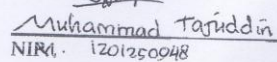 Muhammad Tajuddin
NIM. 1201250948